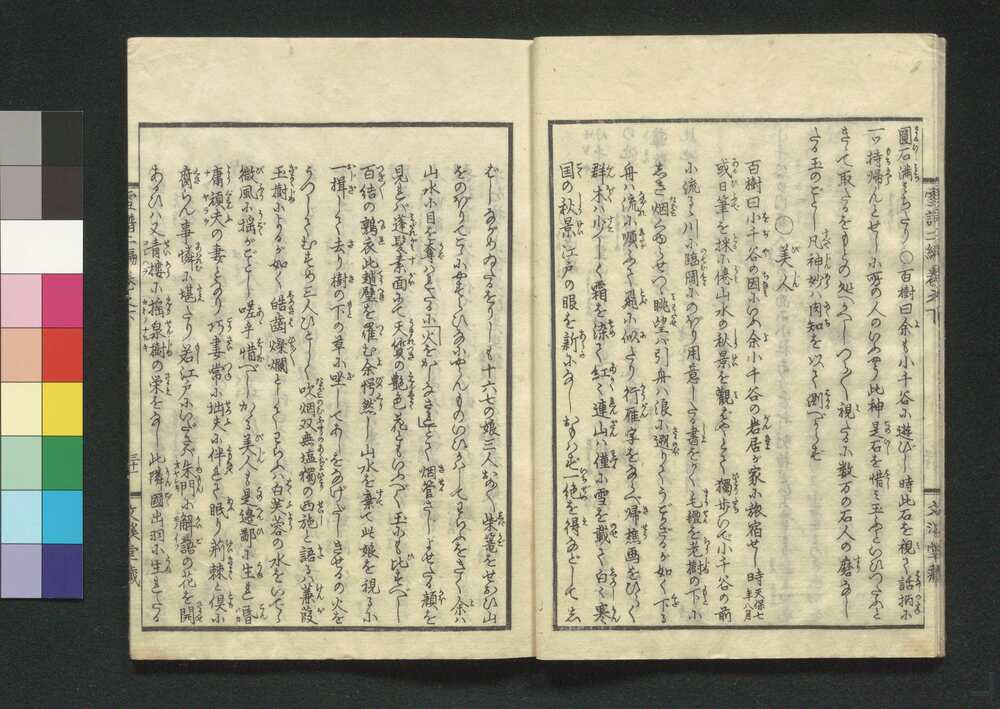 圓石満ちたり○百樹曰余も小千谷に遊びし時此石を視て話柄に
一ツ持帰んとせしに所の人のいふやう此神是石を惜ミ玉ふといひつたふと
きゝて取たるをもとの処へかへしつ
たる玉のごとし凡神妙ハ肉知を以て測べからず
○美人
百樹曰小千谷の因にいふ余小千谷の岩居が家に旅宿せし時天保七年八月
或日筆を採に倦山水の秋景を觀ばやとて獨歩いで小千谷の前
に流るゝ川に臨岡にのぼり用意したる書をかく毛氈を老樹の下に
しき烟くゆらせつゝ眺望バ引舟ハ浪に遡りてうごかざるが如く下る
舟ハ流に順ふて飛に似たり行雁字をならべ帰樵画をひらく
群木ハ少しく霜を染て紅く連山ハ僅に雪を戴て白し寒
国の秋景江戸の眼を新にし おもはず一絶を得などして
むしながめゐたるをりしも十六七の娘三人おの〳〵柴籠をせおひ山
をのぼりてこゝにやすらひ
山水に目を奪ハれたるに火をかしなさいとて烟管さしよせたる顔を
見れバ蓬髪素面にて天質の艶色花ともいふべく玉にも比すべし
百結の鶉衣此趙璧を羅む余愕然し山水を棄て此娘を視るに
一揖して去り樹の下の草に坐してあしをなげだしきせるの火を
うつしてむすめ三人ひとしく吹烟双無塩獨の西施と語るハ蒹葭
玉樹によるが如く皓歯燦爛としてわらふハ白芙蓉の水をいでゝ
微風に揺がごとし嗟乎惜べしかゝる美人も是邊鄙に生れ昏
庸頑夫の妻となり巧妻常に拙夫に伴はれて眠り荊棘と倶に
腐らん事憐に堪たり若江戸にいださバ朱門に解語の花を開
あるひハ又青樓に揺泉樹の栄をなし此隣國出羽に生れたる
三十一